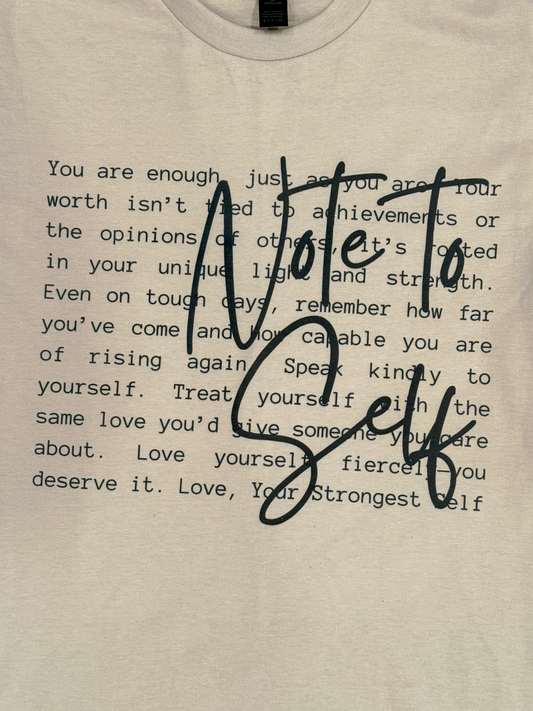 You are enough, just as you are. Your
worth isn't tied to achievements or
the opinions of others, it's rooted
in your unique light and strength.
Even on tough days, remember how far
you've come and how capable you are
of rising again. Speak kindly to
yourself. Treat yourself with the
same love you'd give someone you care
about. Love yourself fiercely—you
deserve it. Love, Your Strongest Self
Note To
Self